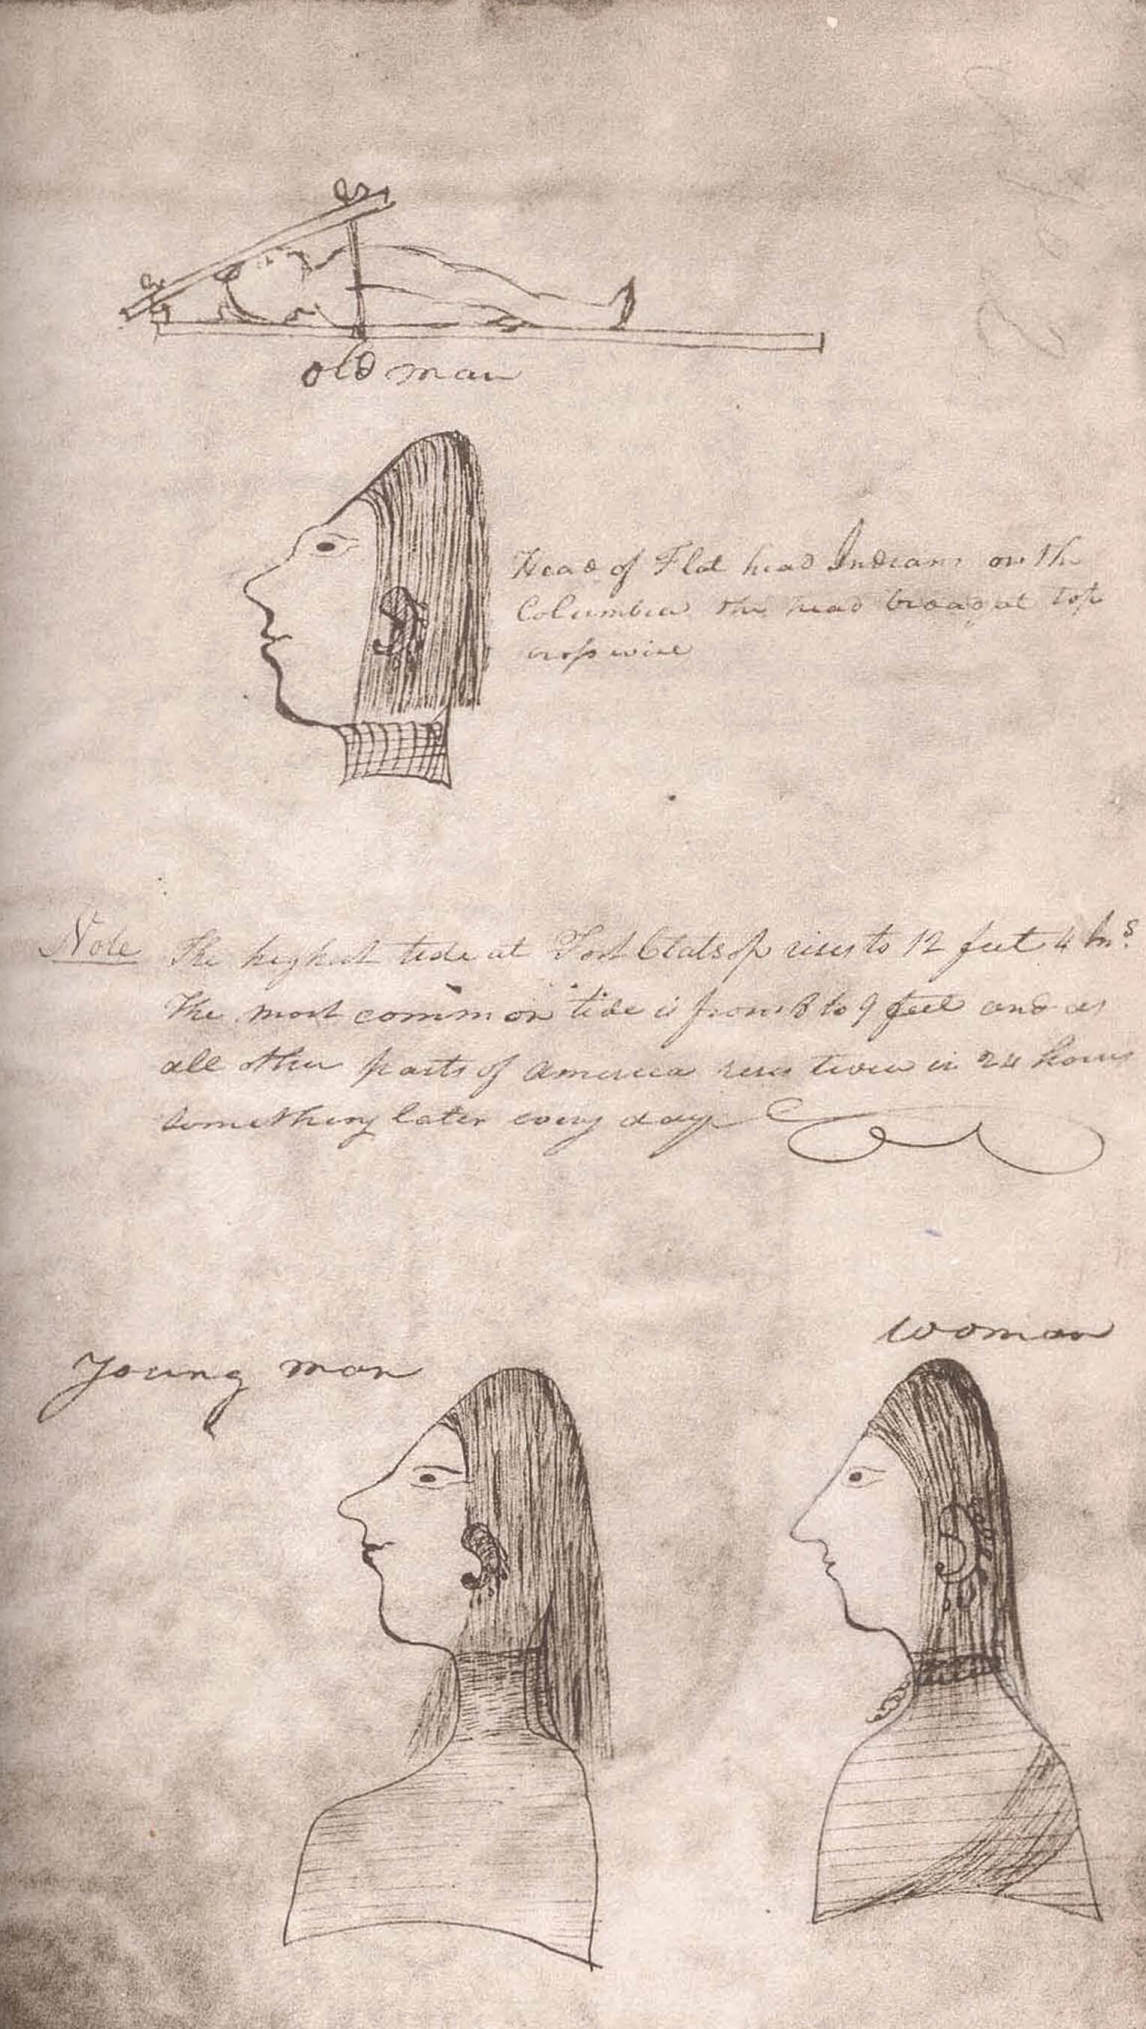 old man
Head of Flat head Indians on the
Columbia the head broad at top
cross wise
Note The highest tide at Fort Clatsop rises to 12 feet 4 Ins.
The most common tide is from 8 to 9 feet and as
all other parts of America rises twice in 24 hours
something later every day
Young man
Woman